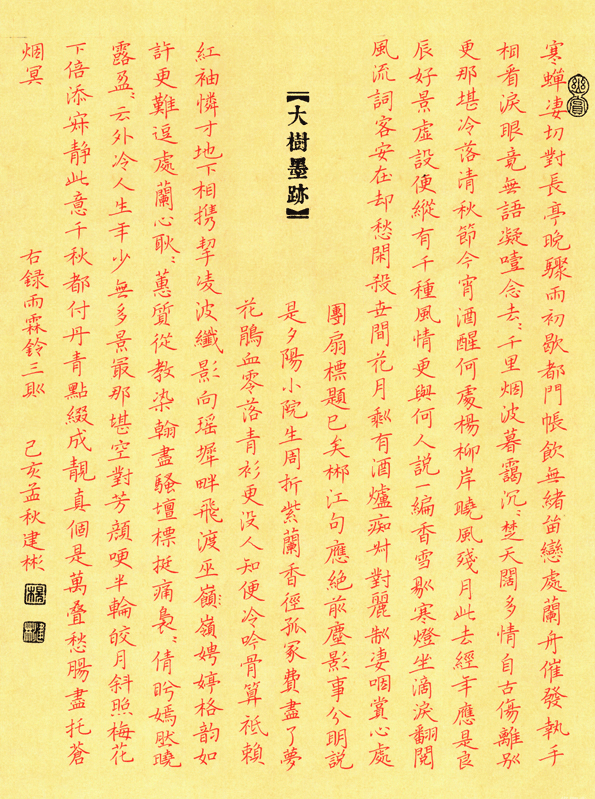 寒蟬淒切對長亭晚驟雨初歇都門帳飲無緒留戀處蘭舟催發執手
相看淚眼竟無語凝噎念去〻千里烟波暮靄沉〻楚天闊多情自古傷離别
更那堪冷落清秋節今宵酒醒何處楊柳岸曉風殘月此去經年應是良
辰好景虛設便縱有千種風情更與何人説一編香雪剔寒燈坐滴淚翻閱
風流詞客安在却愁閑殺世間花月剩有酒爐痴對麗制凄咽賞心處
【大樹墨跡】
團扇標題已矣郴江句應絶前塵影事分明説
是夕陽小院生周折紫蘭香徑孤冢費盡了夢
花鵑血零落青衫更没人知便冷吟骨算祇賴
紅袖憐才地下相携挈凌波纖影向瑶墀畔飛渡巫嶺娉婷格韵如
許更難逗處蘭心耿〻蕙質從教染翰盡騷壇標挺痛裊〻倩盼嫣然曉
露盈〻云外冷人生年少無多景最那堪空對芳顔哽半輪皎月斜照梅花
下倍添寂静此意千秋都付丹青點綴成靚真個是萬叠愁腸盡托蒼
烟冥
右録雨霖鈴三
己亥孟秋建彬